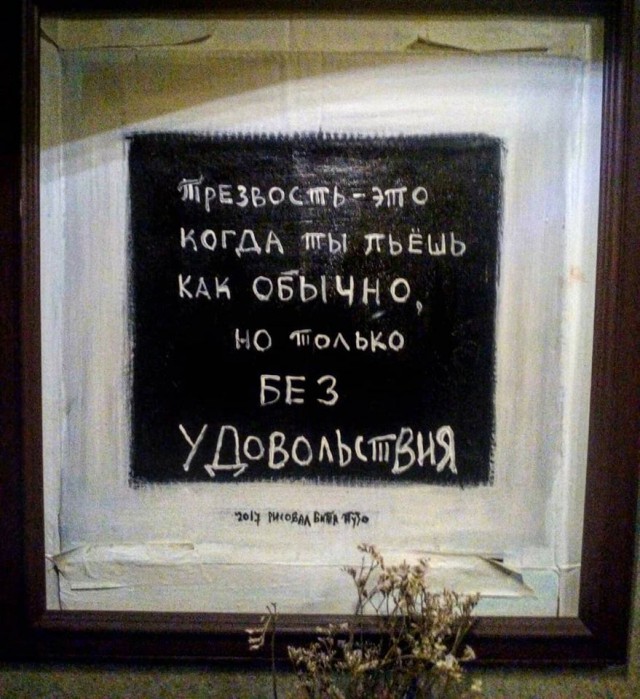 ТРЕЗВОСТЬ-ЭТО
КОГДА ТЫ ПЬЁШЬ
КАК ОБЫЧНО,
НО ТОЛЬКО
БЕЗ
УДОВОЛЬСТВИЯ
2017 РИСОВАЛ ВИТЯ ПУЗО